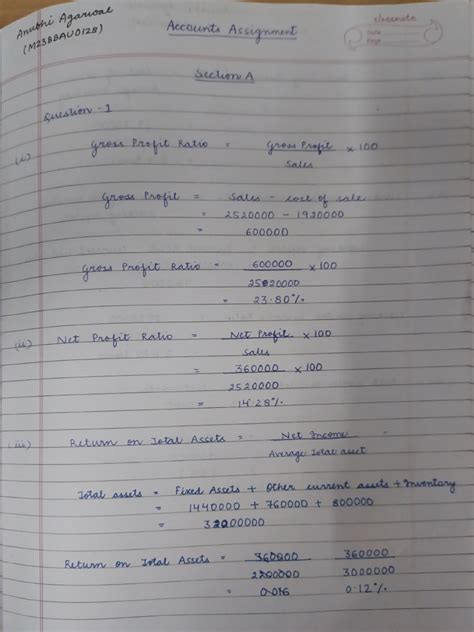 Anubhi Agarwal
(M23BBAU0128)
Accounts Assignment
classmate
Date
Page
Section A
Question - 1
(i) Gross Profit Ratio = Gross Profit × 100
Sales
Gross Profit = Sales - cost of sale
= 2520000 - 1920000
= 600000
Gross Profit Ratio = 600000 × 100
2520000
= 23.80%
(ii) Net Profit Ratio = Net Profit × 100
Sales
= 360000 × 100
2520000
= 14.28%
(iii) Return on Total Assets = Net Income
Average Total asset
Total assets = Fixed Assets + Other current assets + Inventory
= 1440000 + 760000 + 800000
= 3000000
Return on Total Assets = 360000 360000
3000000
= 0.12%